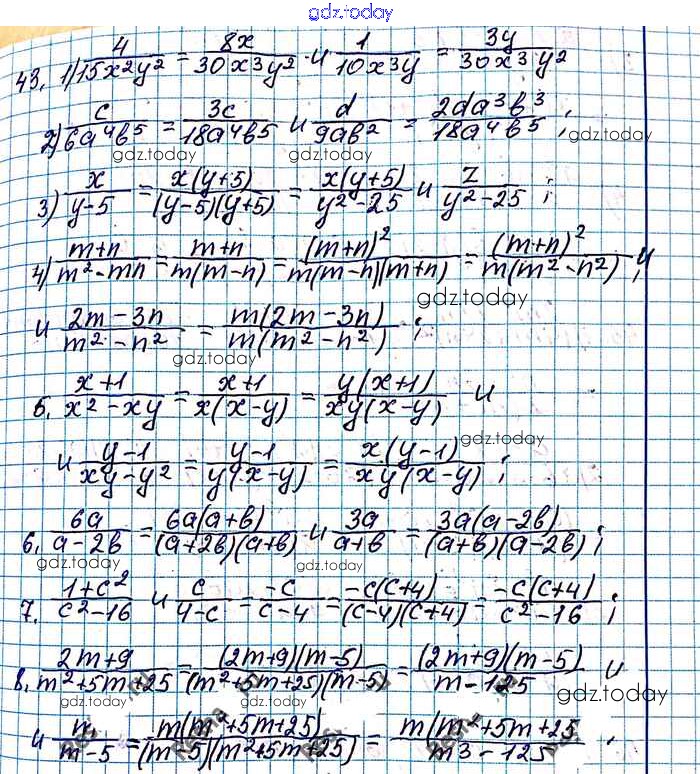 gdz.today
43. 1) 4/15x²y² = 8x/30x³y² и 1/10x³y = 3y/30x³y²
2) c/6a⁴b⁵ = 3c/18a⁴b⁵ и d/9ab² = 2da³b³/18a⁴b⁵ ;
gdz.today gdz.today
3) x/y-5 = x(y+5)/(y-5)(y+5) = x(y+5)/y²-25 и z/y²-25 ;
4) m+n/m²-mn = m+n/m(m-n) = (m+n)²/m(m-n)(m+n) = (m+n)²/m(m²-n²) ; и
gdz.today
и 2m-3n/m²-n² = m(2m-3n)/m(m²-n²) ;
gdz.today
5. x+1/x²-xy = x+1/x(x-y) = y(x+1)/xy(x-y) и
и y-1/xy-y² = y-1/y(x-y) = x(y-1)/xy(x-y) ;
gdz.today
6. 6a/a-2b = 6a(a+b)/(a+2b)(a+b) и 3a/a+b = 3a(a-2b)/(a+b)(a-2b) ;
gdz.today gdz.today
7. 1+c²/c²-16 и c/4-c = -c/c-4 = -c(c+4)/(c-4)(c+4) = -c(c+4)/c²-16 ;
8. 2m+9/m²+5m+25 = (2m+9)(m-5)/(m²+5m+25)(m-5) = (2m+9)(m-5)/m-125 и
gdz.today gdz.today gdz.today
и m/m-5 = m(m²+5m+25)/(m-5)(m²+5m+25) = m(m²+5m+25/m3-125 .